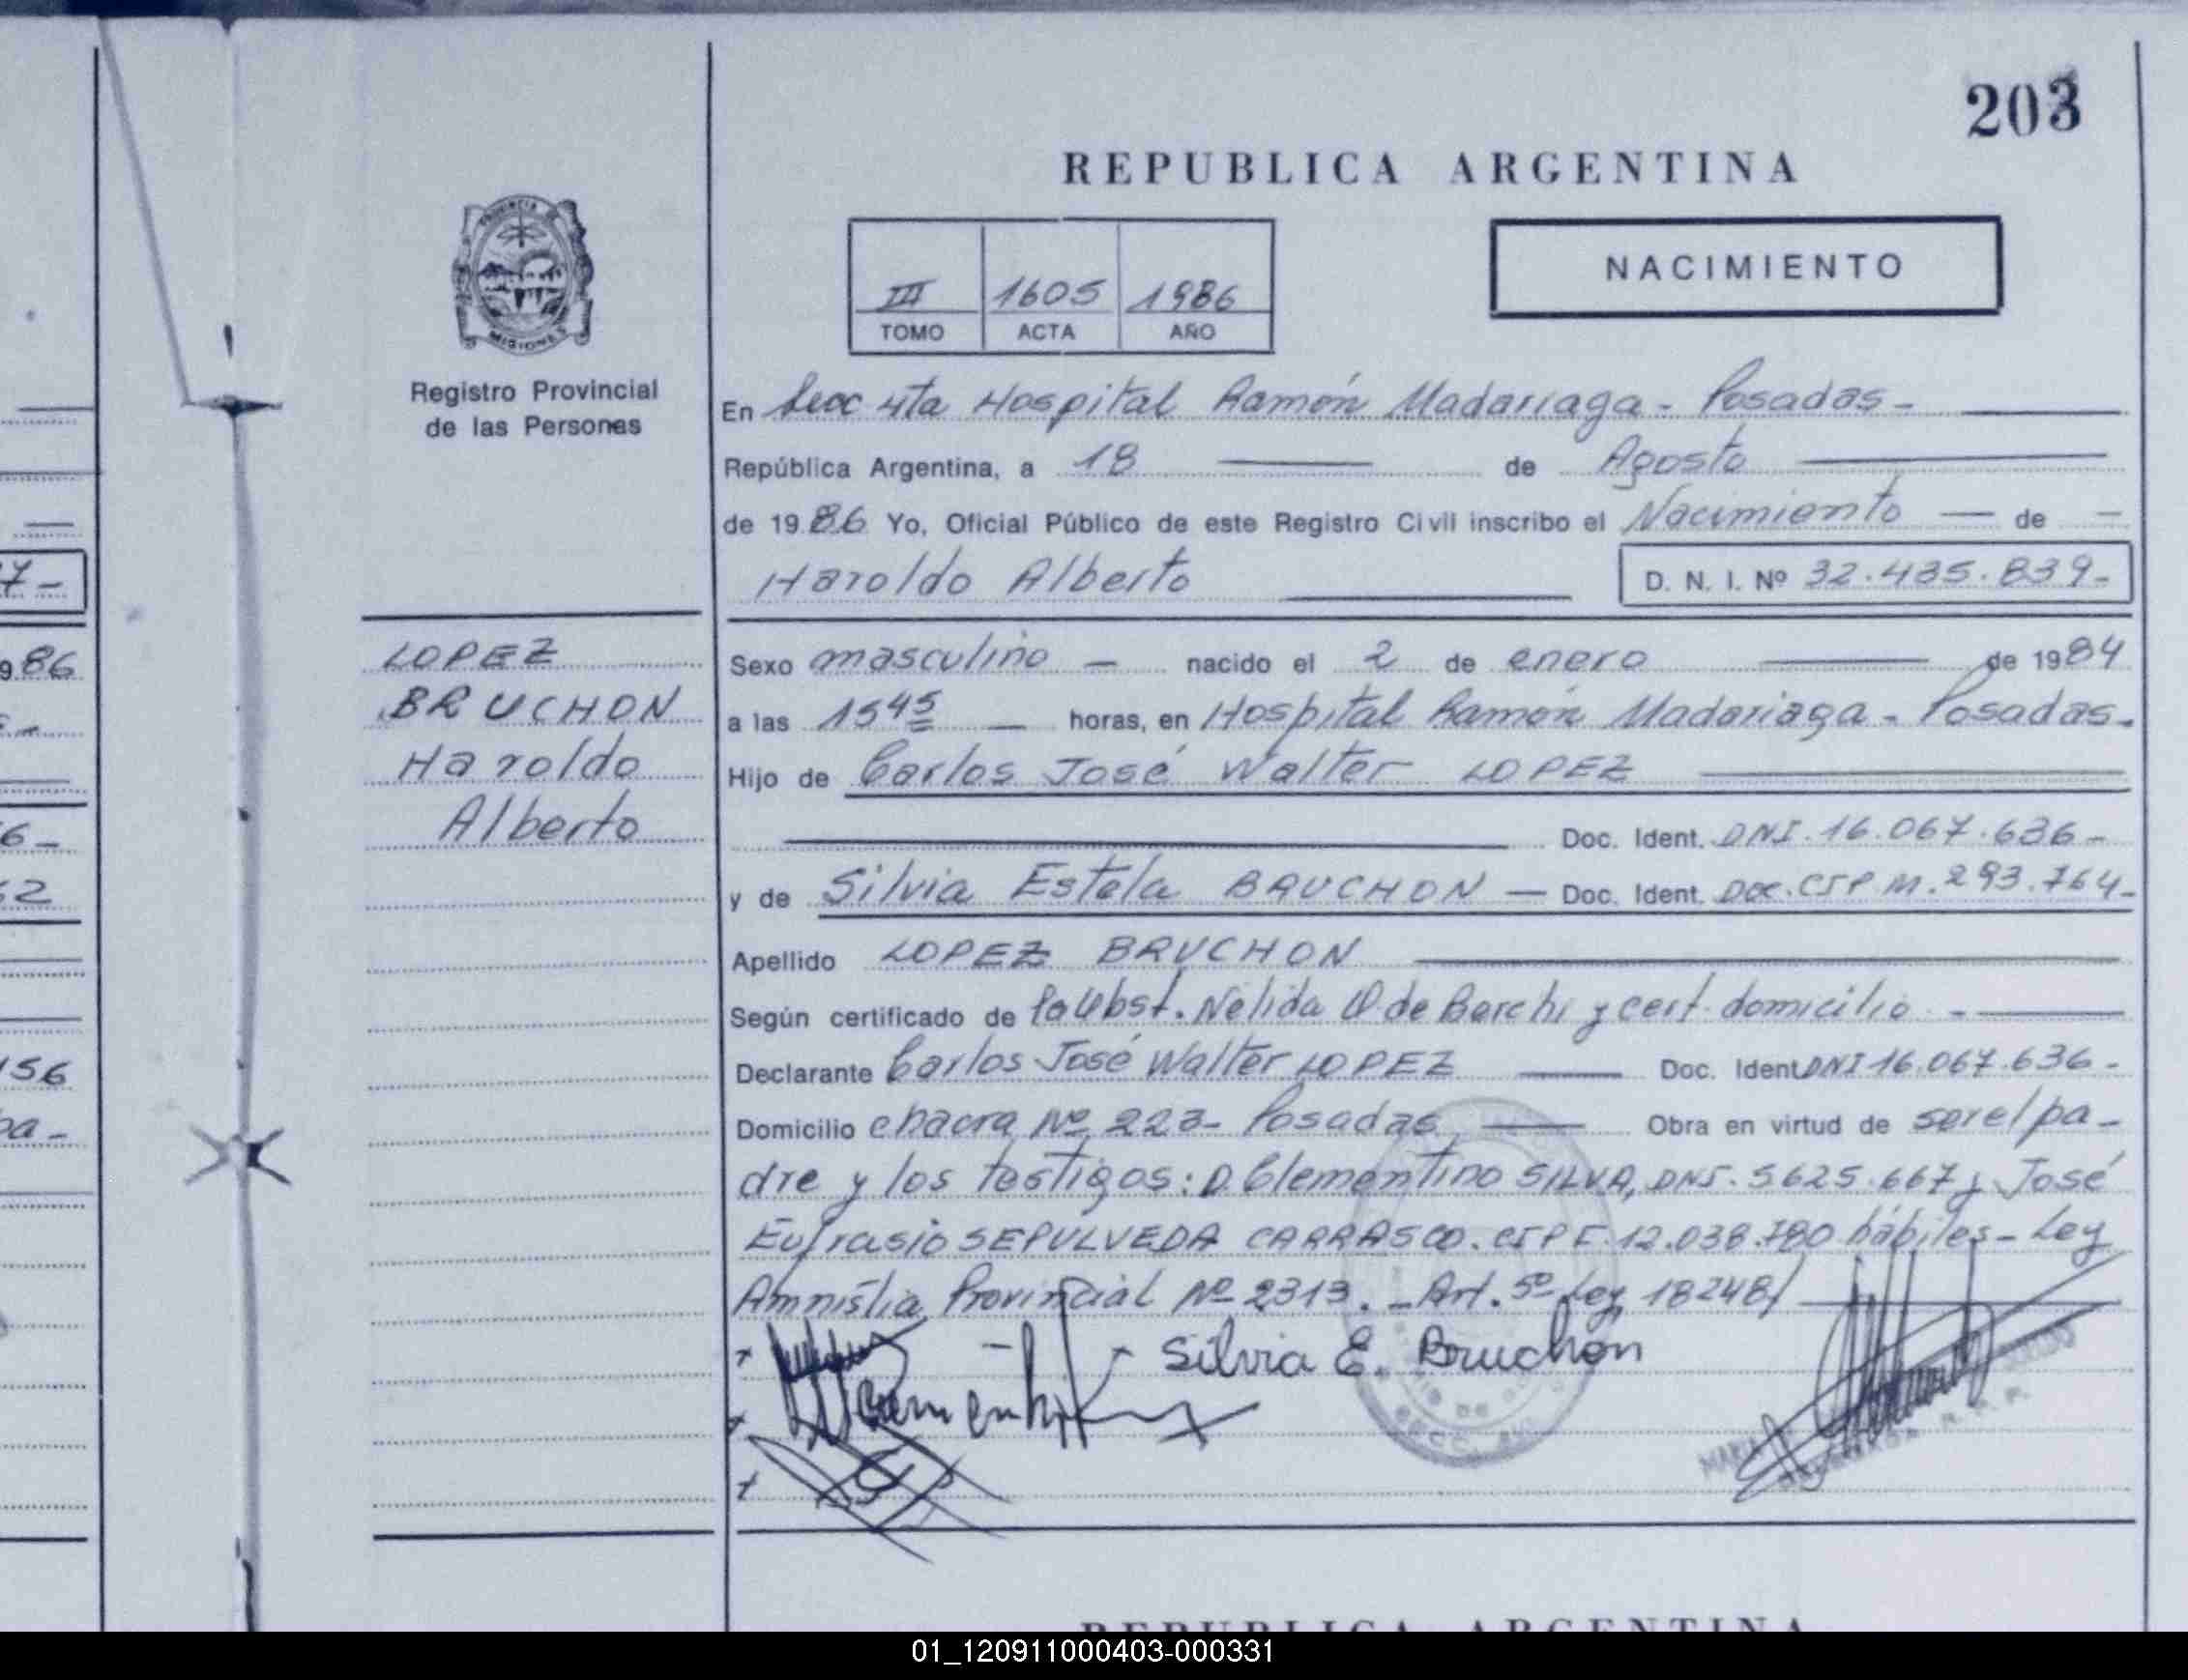 203
REPUBLICA ARGENTINA
PROVINCIA DE
MISIONES
III 1605 1986
TOMO ACTA AÑO
NACIMIENTO
Registro Provincial
de las Personas
En Secc 4ta Hospital Ramón Madariaga - Posadas -
República Argentina, a 18 de Agosto
de 1986 Yo, Oficial Público de este Registro Civil inscribo el Nacimiento — de —
Haroldo Alberto D. N. I. Nº 32.435.839-
LOPEZ
BRUCHON
Haroldo
Alberto
Sexo masculino — nacido el 2 de enero de 1984
a las 1545 — horas, en Hospital Ramón Madariaga - Posadas.
Hijo de Carlos José Walter LOPEZ
Doc. Ident. DNI. 16.067.636-
y de Silvia Estela BRUCHON — Doc. Ident. Doc. CIP M. 293.764-
Apellido LOPEZ BRUCHON
Según certificado de la Obst. Nélida de Barchi y cert. domicilio -
Declarante Carlos José Walter LOPEZ Doc. Ident. DNI 16.067.636-
Domicilio chacra Nº 223- Posadas Obra en virtud de ser el pa-
dre y los testigos: D. Clementino SILVA, DNI. 5625.667 y José
Eufrasio SEPULVEDA CARRASCO. CIPF. 12.038.780 hábiles - Ley
Amnistia Provincial Nº 2313. - Art. 5º Ley 18248/
Silvia E. Bruchon
7-
986
6-
62
156
pa-
REPUBLICA ARGENTINA
01_120911000403-000331